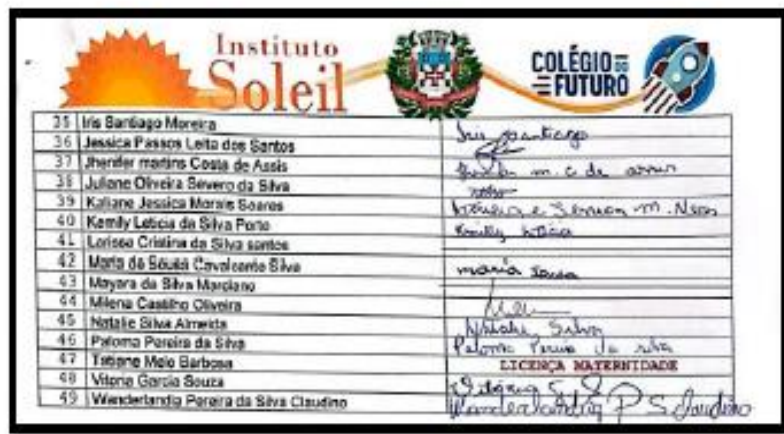 Instituto
Soleil
COLÉGIO DO
FUTURO
35 Iris Santiago Moreira Iris Santiago
36 Jessica Passos Leita dos Santos
37 Jhenifer martins Costa de Assis m. c de assis
38 Juliane Oliveira Severo da Silva
39 Kaliane Jessica Morais Soares
40 Kemily Leticia da Silva Porto
41 Larissa Cristina da Silva santos
42 Maria de Sousa Cavalcante Silva maria Sousa
43 Mayara da Silva Marciano
44 Milena Castilho Oliveira
45 Natalie Silva Almeida Natalie Silva
46 Paloma Pereira da Silva Paloma Pereira da silva
47 Tatiane Melo Barbosa LICENÇA MATERNIDADE
48 Vitoria Garcia Souza
49 Wanderlandia Pereira da Silva Claudino Wanderlandia P S Claudino